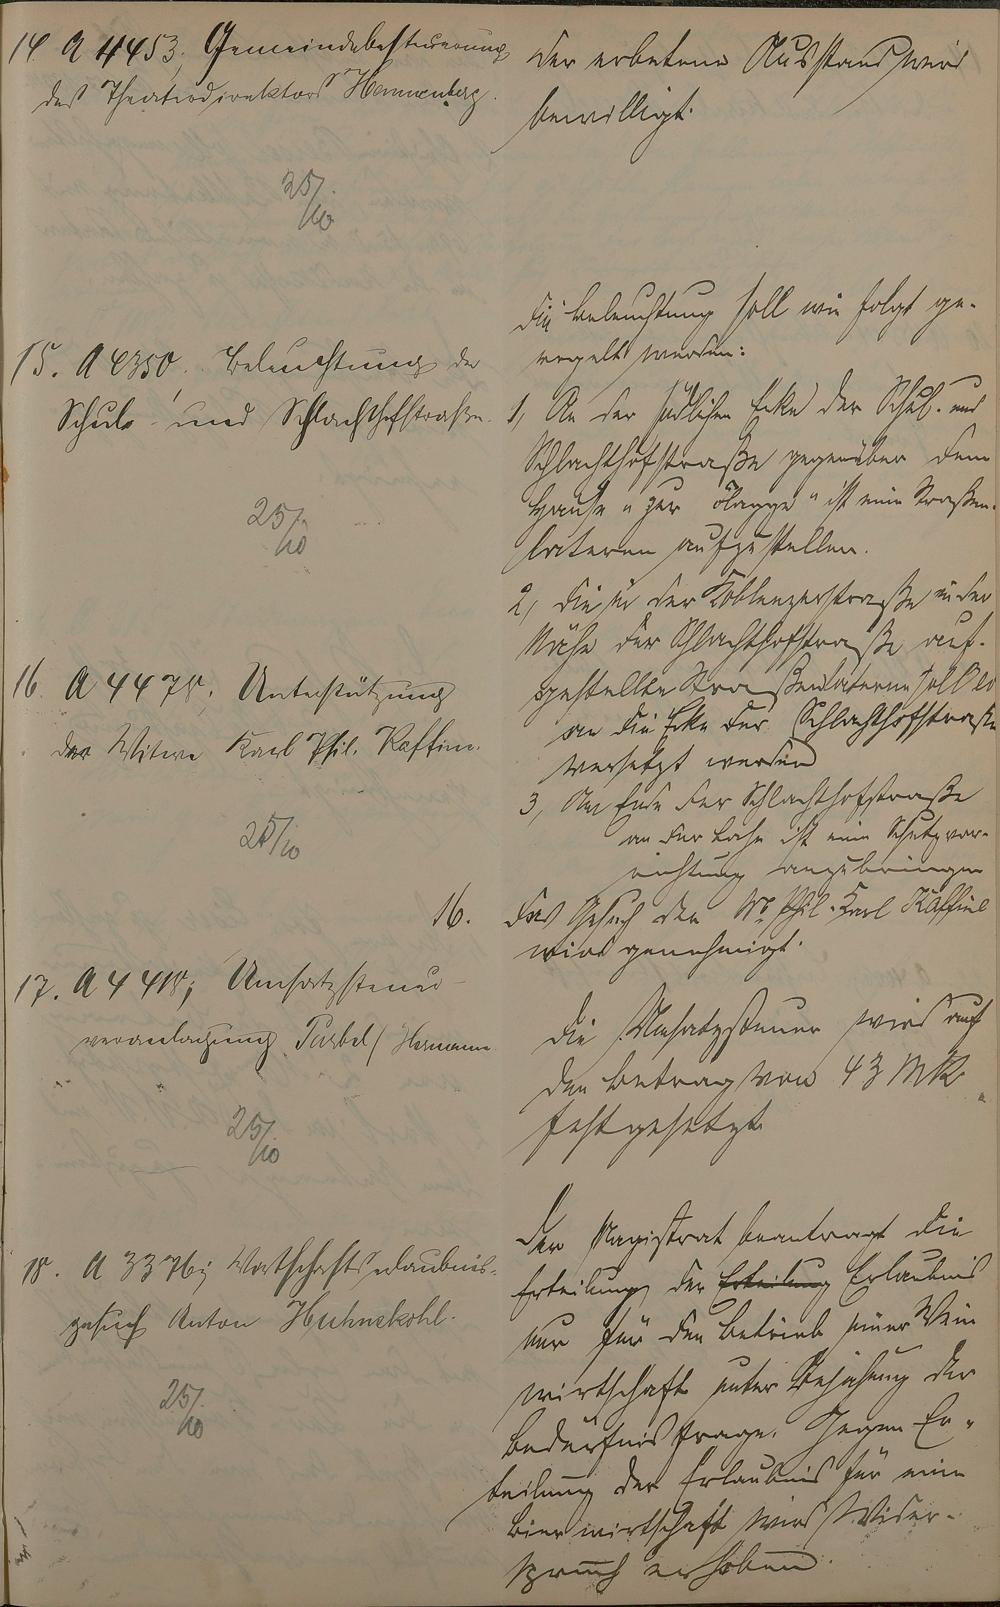 14. A 4453; Gemeindebesteuerung
des Theaterdirektors Hannenberg.
25/10
Der erbetene Ausstand wird
bewilligt.
15. A 4350; Beleuchtung der
Schul- und Schlachthofstraße.
25/10
Die Beleuchtung soll wie folgt ge-
regelt werden:
1, An der südlichen Ecke der Schul- und
Schlachthofstraße gegenüber dem
Hause "zur Flagge" ist eine Straßen-
laterne aufzustellen.
2, Die in der Koblenzerstraße in der
Nähe der Schlachthofstraße auf-
gestellte Straßenlaterne soll
an die Ecke der Schlachthofstraße
versetzt werden
3, Am Ende der Schlachthofstraße
an der Lahn ist eine Schutzvor-
richtung anzubringen
16. A 4478; Unterstützung
der Witwe Karl Phil. Kaffine.
25/10
16. Das Gesuch der Ww. Phil. Karl Kaffine
wird genehmigt.
17. A 4418; Umsatzsteuer-
veranlagung Hermann
25/10
Die Umsatzsteuer wird auf
den Betrag von 43 Mk.
festgesetzt
18. A 3376; Wirtschaftserlaubnis-
gesuch Anton Huhnekohl.
25/10
Der Magistrat beantragt die
Erteilung der Erteilung Erlaubnis
nur für den Betrieb einer Wein
wirtschaft unter Bejahung der
Bedürfnisfrage. Gegen Er-
teilung der Erlaubnis für eine
Bierwirtschaft wird Wider-
spruch erhoben.